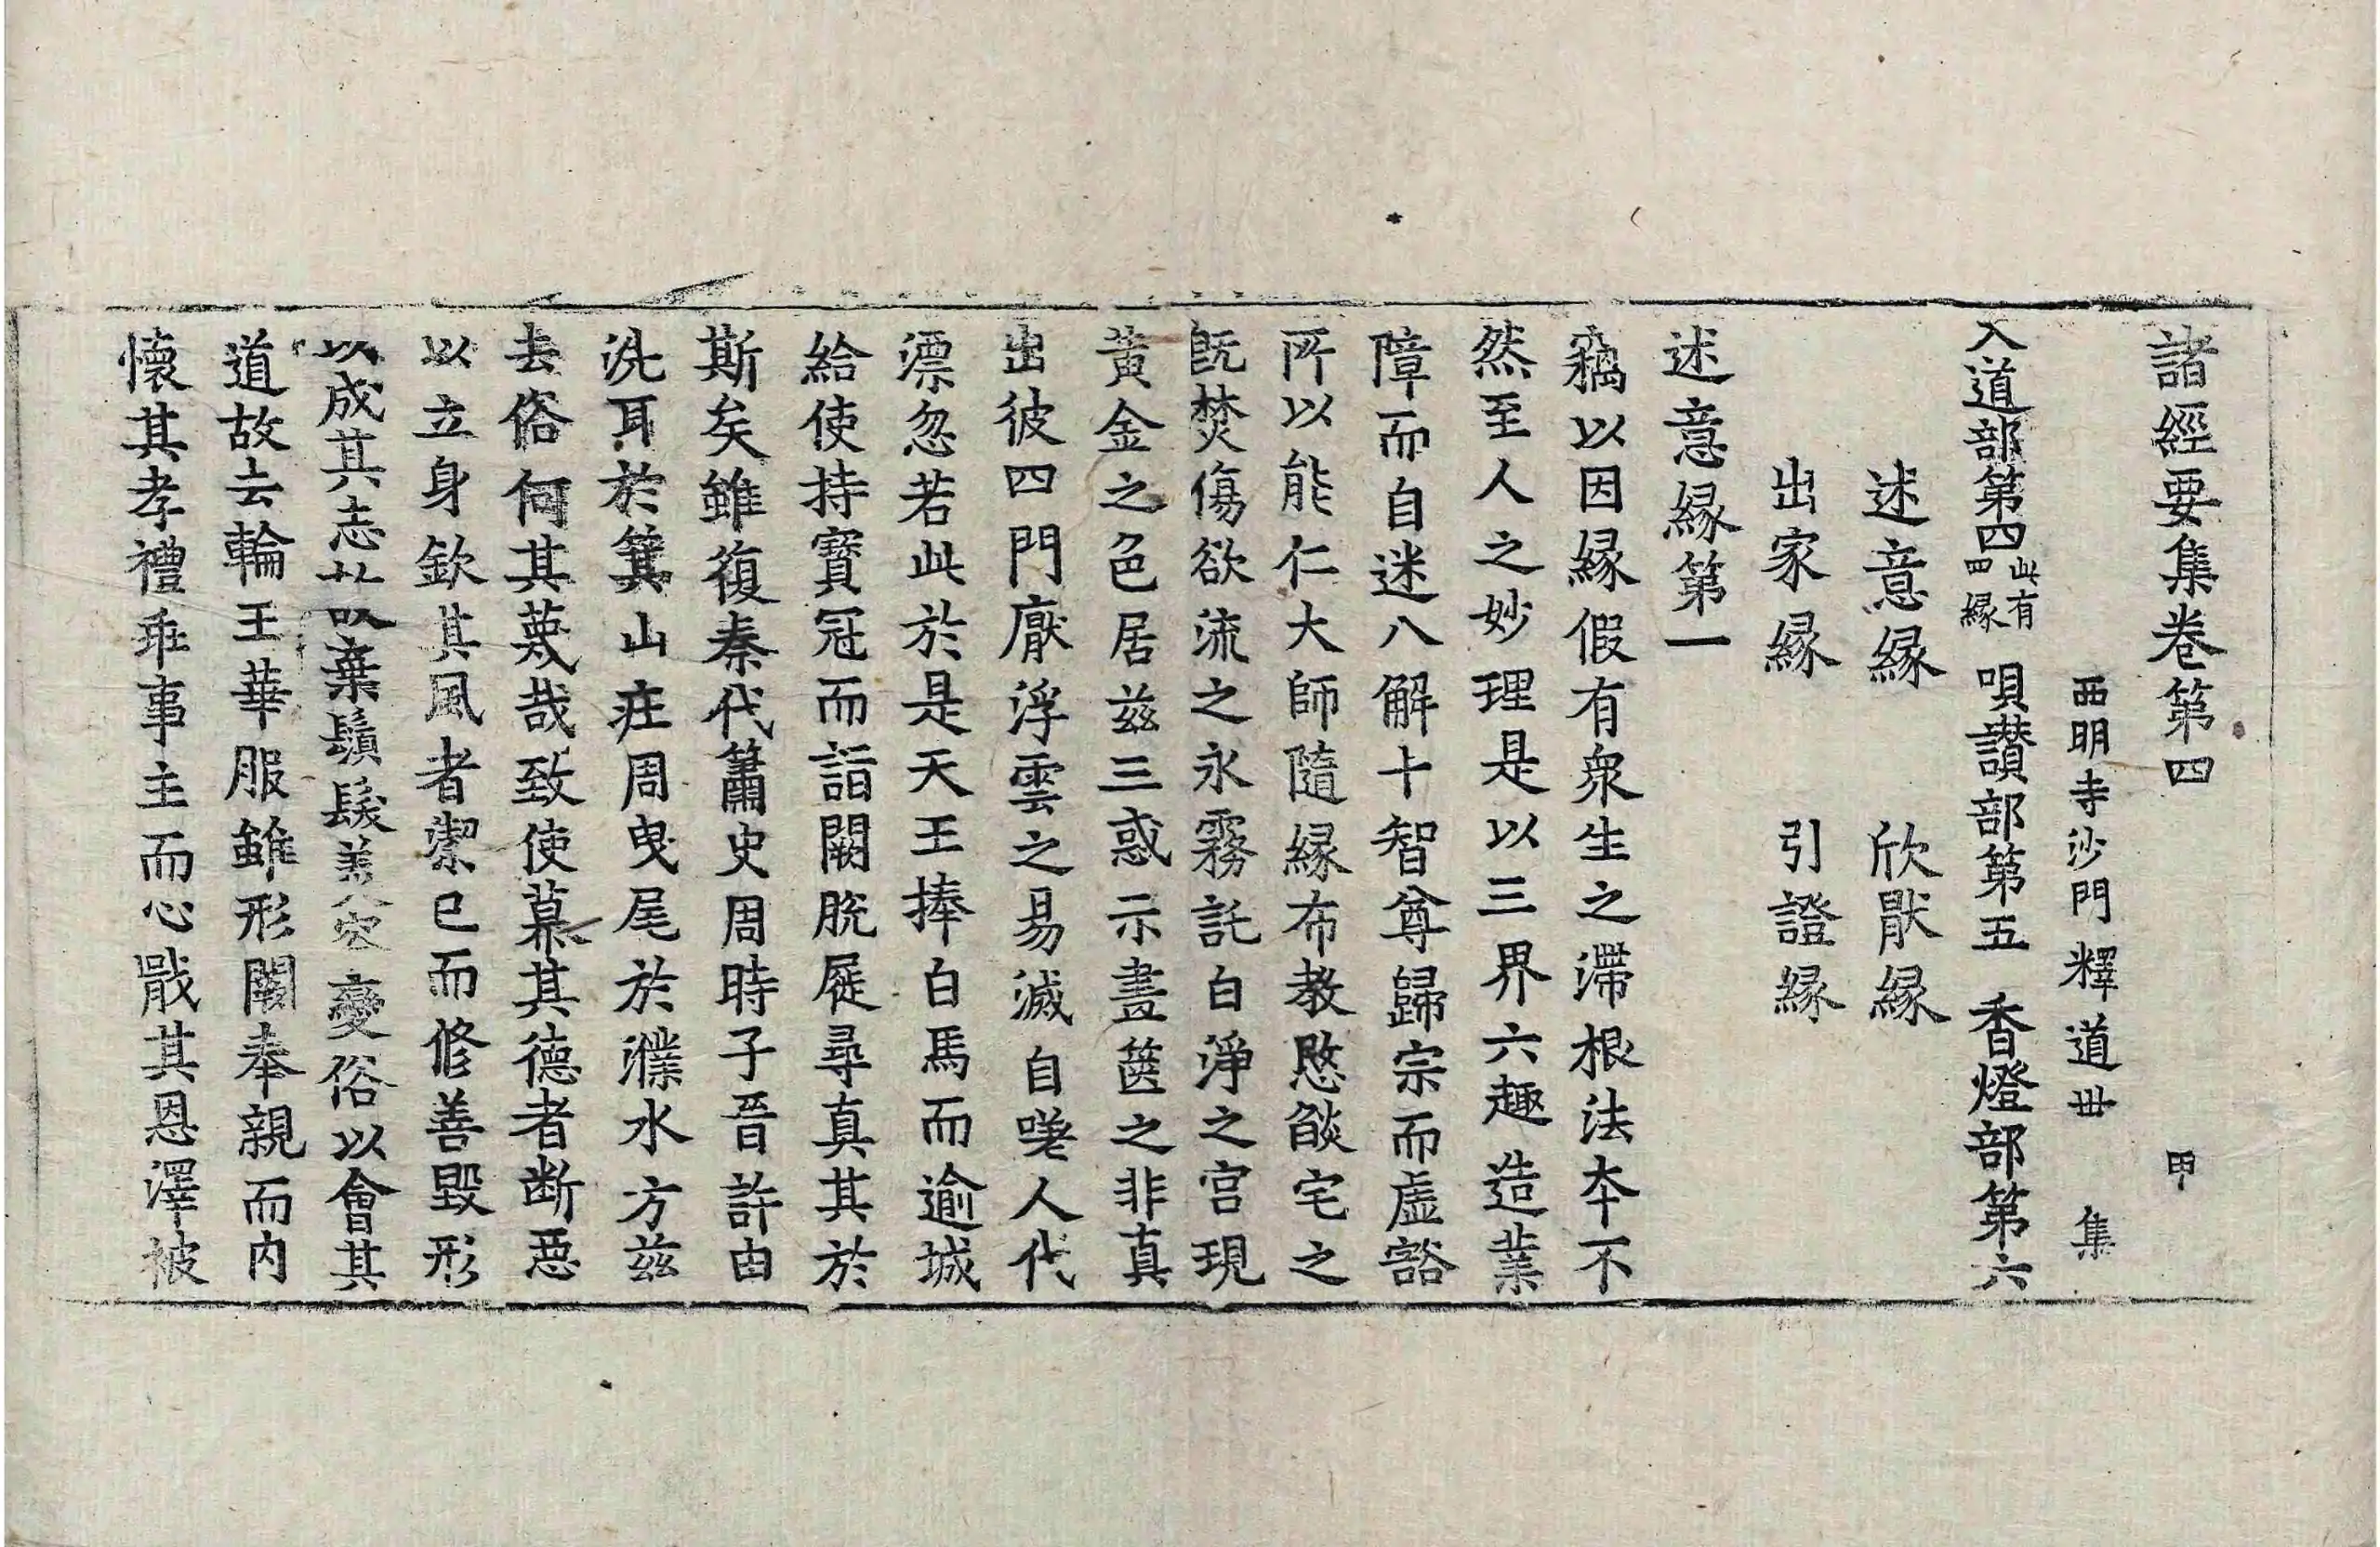 諸經要集卷第四 甲
西明寺沙門釋道丗 集
入道部第四此有四縁 唄讃部第五 香燈部第六
述意縁 欣猒縁
出家縁 引證縁
述意縁第一
竊以因縁假有衆生之滯根法夲不
然至人之妙理是以三界六趣造業
障而自迷八解十智尊歸宗而虚豁
所以能仁大師隨縁布教愍燄宅之
旣焚傷欲流之永霧託白淨之宫現
黄金之色居兹三惑示畫篋之非真
出彼四門厭浮雲之易滅自嗟人代
漂忽若此於是天王捧白馬而逾城
給使持寳冠而詣闕脫屣尋真其於
斯矣雖復秦代簫史周時子晉許由
洗耳於箕山莊周曳尾於濮水方兹
去俗何其蔑哉致使慕其德者断惡
以立身欽其風者潔已而修善毁形
以成其志故棄鬚髮美容變俗以會其
道故去輪王華服雖形闕奉親而内
懷其孝禮乖事主而心戢其恩澤被